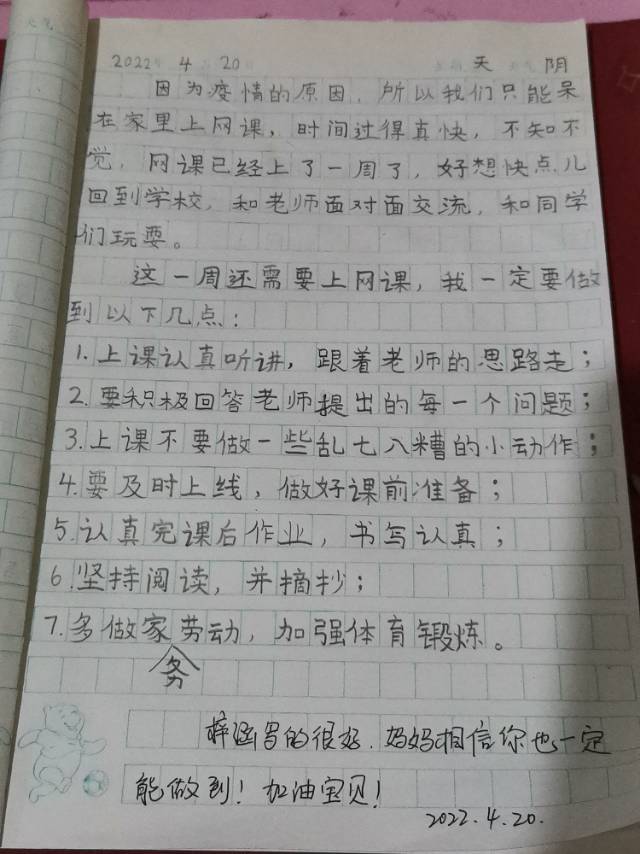 2022 4 20 天 阴
因为疫情的原因，所以我们只能呆
在家里上网课，时间过得真快，不知不
觉，网课已经上了一周了，好想快点儿
回到学校，和老师面对面交流，和同学
们玩耍。
这一周还需要上网课，我一定要做
到以下几点：
1.上课认真听讲，跟着老师的思路走；
2.要积极回答老师提出的每一个问题；
3.上课不要做一些乱七八糟的小动作；
4.要及时上线，做好课前准备；
5.认真完课后作业，书写认真；
6.坚持阅读，并摘抄；
7.多做家劳动，加强体育锻炼。
务
梓涵写的很好，妈妈相信你也一定
能做到！加油宝贝！
2022.4.20.